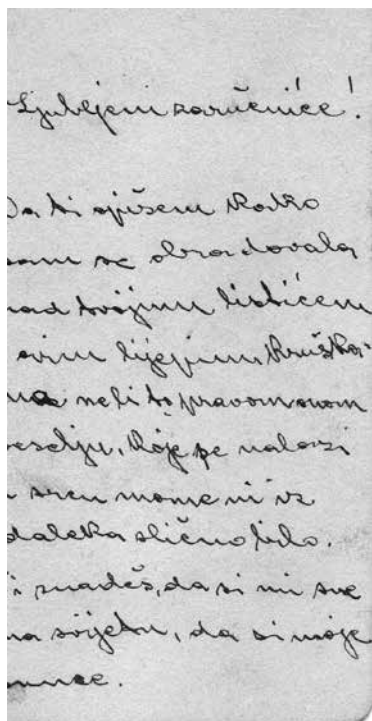 Ljubljeni zaručniče!
Da ti opišem kako
sam se obradovala
nad tvojim listićem
ovim lijepim kruška-
ma neli to pravom ovom
veselju, koje se nalazi
u srcu mome ni iz
daleka slično bilo.
Ti znadeš, da si mi sve
na svijetu, da si moje
sunce.